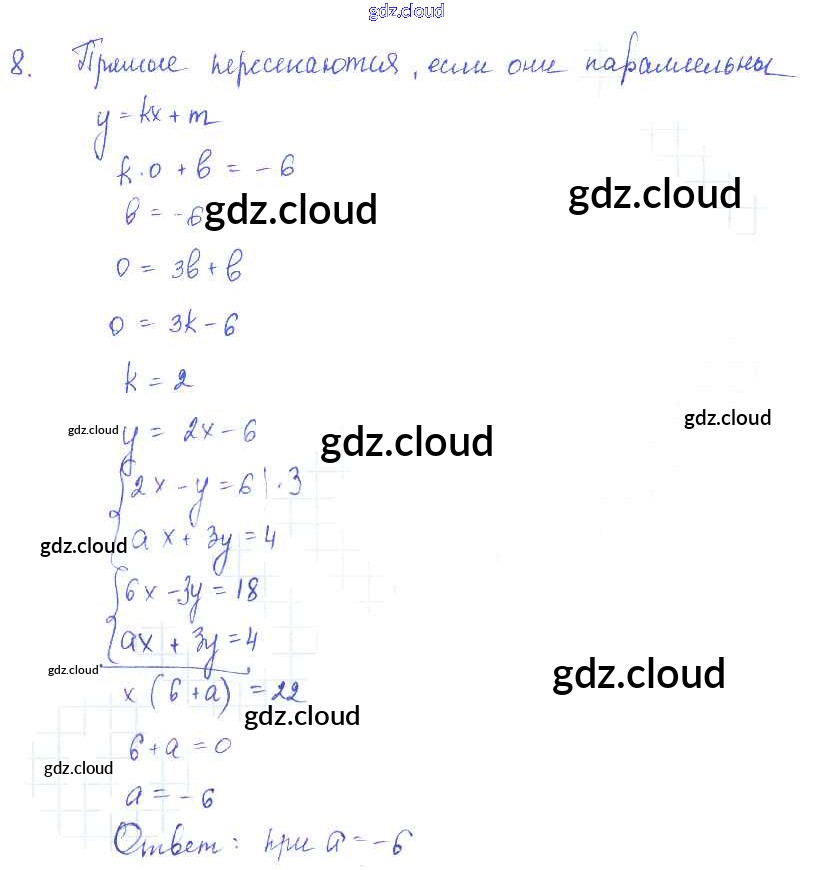 gdz.cloud
8. Прямые пересекаются, если они параллельны
y = kx + m
k·0 + b = -6
b = -6 gdz.cloud gdz.cloud
0 = 3b + b
0 = 3k - 6
k = 2
gdz.cloud y = 2x - 6 gdz.cloud gdz.cloud
{2x - y = 6 | · 3
gdz.cloud {ax + 3y = 4
{6x - 3y = 18
{ax + 3y = 4
gdz.cloud x (6 + a) = 22 gdz.cloud
gdz.cloud
6 + a = 0
gdz.cloud
a = - 6
Ответ: при a = -6